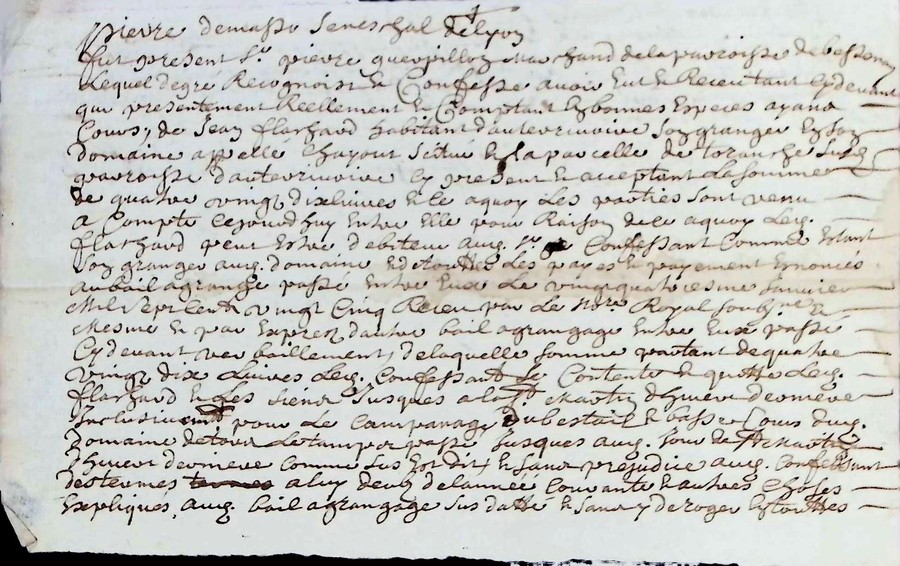 pierre demasso seneschal de Lyon
fut present Sr. pierre querpillon marchand de la paroisse de bessenay
Lequel de gré Recognoist et Confesse avoir eut et Receu tant cy devant
que presentement Reellement et Comptant en bonnes Especes ayant
Cours, de Jean flachard habitant d'autervivoire son granger en son
domaine appellé Chayout scitué en la parcelle de toranche susd.
parroisse d'autervivoire cy present et acceptant La somme
de quatre vingt dix livres et ce a quoy Les parties sont venu
a Compte cejourdhuy Entre Elle pour Raison de ce a quoy Led.
flachard peut Estre debiteur aud. Sr. Confessant Comme Estant
son granger aud. domaine et de touttes Les payes et payement Enoncés
au bail a grange passé Entre Eux Le vingt quatriesme Janvier
Mil sept cent vingt Cinq Receu par Le Nore. Royal soubne. et
Mesme et par Exprez d'autre bail a grangage Entre Eux passé
Cy devant verballement, de laquelle somme partant de quatre
vingt dix Livres Led. Confessant se Contente et quitte Led.
flachard et Les siens Jusques a la st. Martin d'hiver derniere
Inclusivemt. pour Le Campanage du bestail et basse Cours dud.
Domaine de tout Le temps passé Jusques aud. Jour de st Martin
d'hiver derniere comme sus est dit, et sans prejudice aud. Confessant
des termes a luy deub de lannée Courante et autres Choses
Expliqués aud. bail a grangage sus datté et sans y deroger en touttes